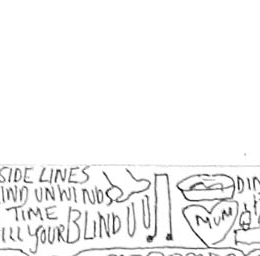 SIDE LINES
IND UNWINDS
TIME
ILL YOUR BLIND
MUM
DIN